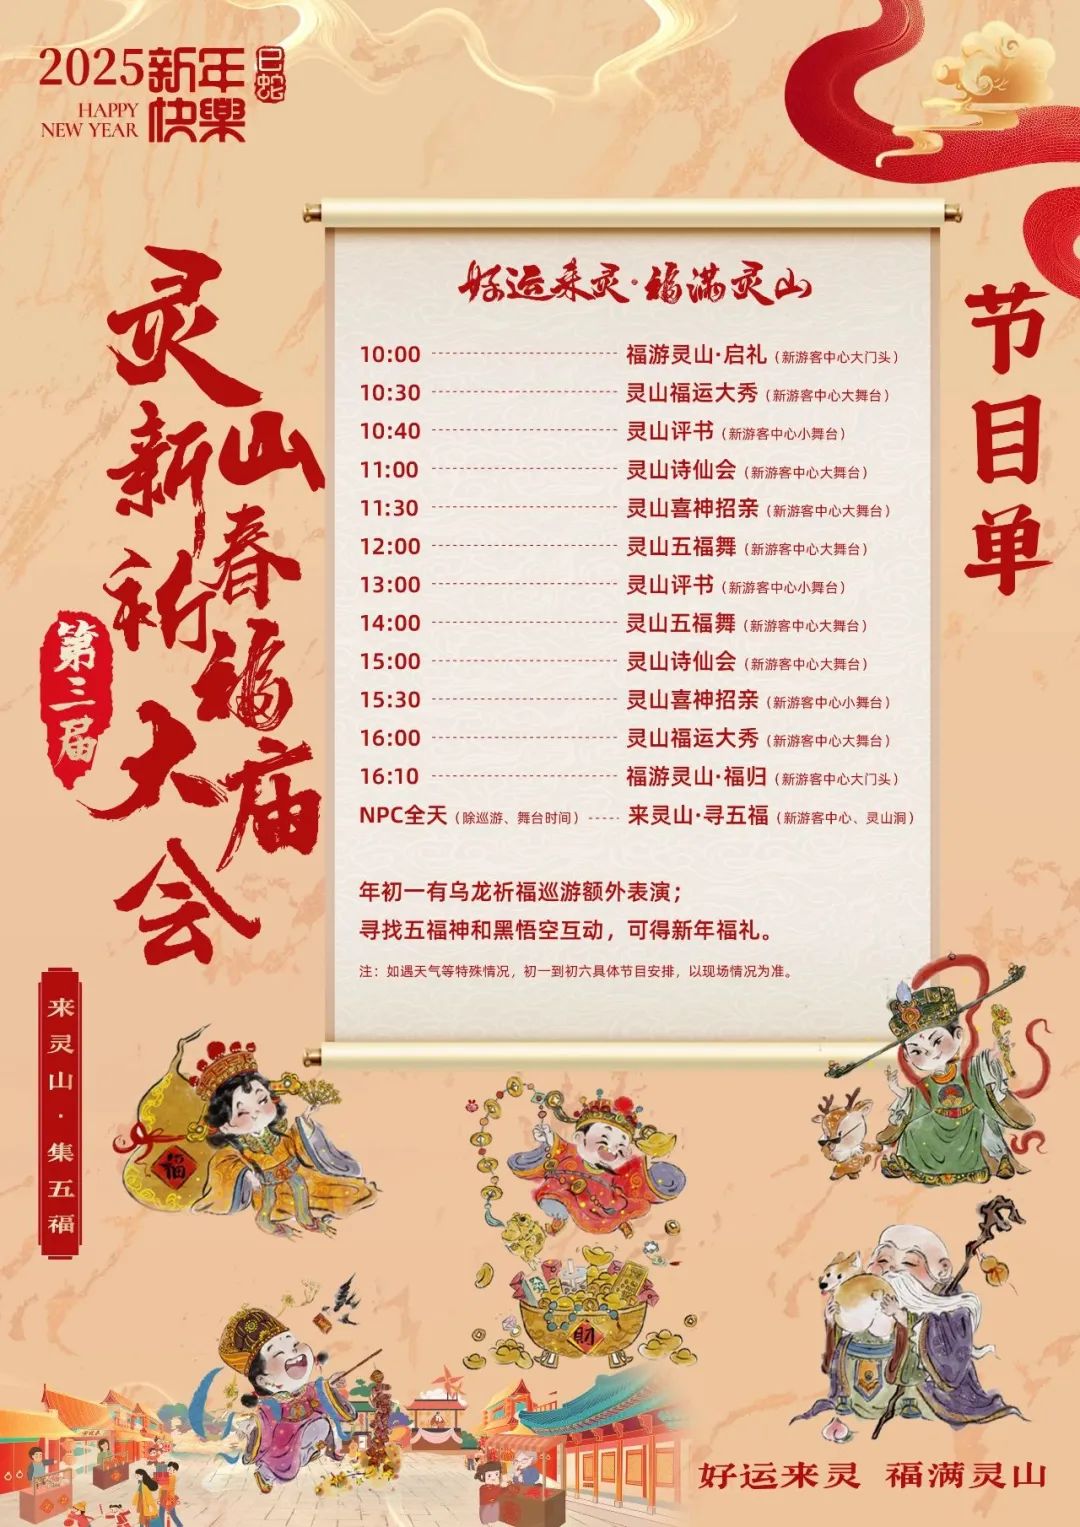 2025新年快樂
HAPPY
NEW YEAR
巳蛇
灵山新春祈福庙会大
第三届
节目单
好运来灵·福满灵山
10:00 福游灵山·启礼（新游客中心大门头）
10:30 灵山福运大秀（新游客中心大舞台）
10:40 灵山评书（新游客中心小舞台）
11:00 灵山诗仙会（新游客中心大舞台）
11:30 灵山喜神招亲（新游客中心大舞台）
12:00 灵山五福舞（新游客中心大舞台）
13:00 灵山评书（新游客中心小舞台）
14:00 灵山五福舞（新游客中心大舞台）
15:00 灵山诗仙会（新游客中心大舞台）
15:30 灵山喜神招亲（新游客中心小舞台）
16:00 灵山福运大秀（新游客中心大舞台）
16:10 福游灵山·福归（新游客中心大门头）
NPC全天（除巡游、舞台时间） 来灵山·寻五福（新游客中心、灵山洞）
年初一有乌龙祈福巡游额外表演；
寻找五福神和黑悟空互动，可得新年福礼。
注：如遇天气等特殊情况，初一到初六具体节目安排，以现场情况为准。
来灵山·集五福
福
财
好运来灵 福满灵山